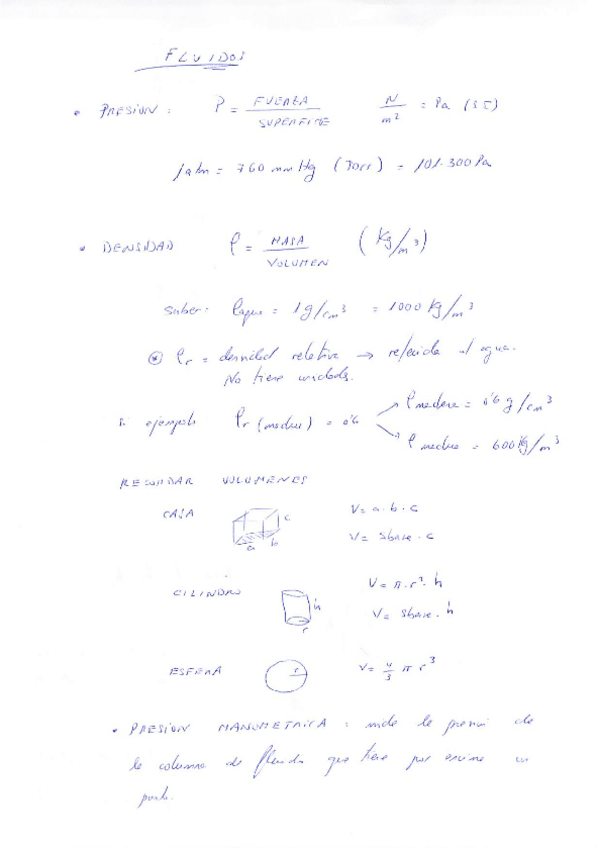 FLUIDOS
• PRESIÓN : P = FUERZA / SUPERFICIE   N / m² = Pa (SI)
1 atm = 760 mm Hg (Torr) = 101.300 Pa
• DENSIDAD   ρ = MASA / VOLUMEN   (Kg/m³)
saber: ρagua = 1 g/cm³ = 1000 Kg/m³
⊛ ρr = densidad relativa → referida al agua.
No tiene unidades.
ejemplo ρr (madera) = 0'6
ρ madera = 0'6 g/cm³
ρ madera = 600 Kg/m³
RECORDAR VOLUMENES
CAJA   a b c   V = a · b · c
V = Sbase · c
CILINDRO   h r   V = π · r² · h
V = Sbase · h
ESFERA   r   V = 4/3 π r³
• PRESIÓN MANOMETRICA : mide la presión de
la columna de fluido que tiene por encima un
punto.